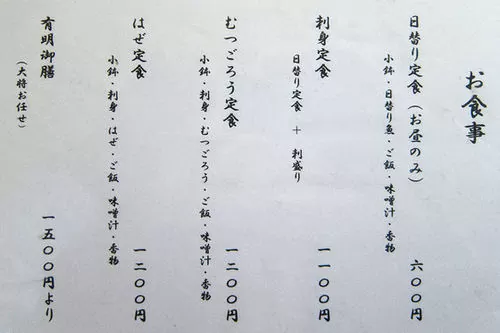 お食事
日替り定食（お昼のみ）　六〇〇円
小鉢・日替り魚・ご飯・味噌汁・香物
刺身定食　一一〇〇円
日替り定食　＋　刺盛り
むつごろう定食　一二〇〇円
小鉢・刺身・むつごろう・ご飯・味噌汁・香物
はぜ定食　一二〇〇円
小鉢・刺身・はぜ・ご飯・味噌汁・香物
有明御膳　一五〇〇円より
（大将お任せ）